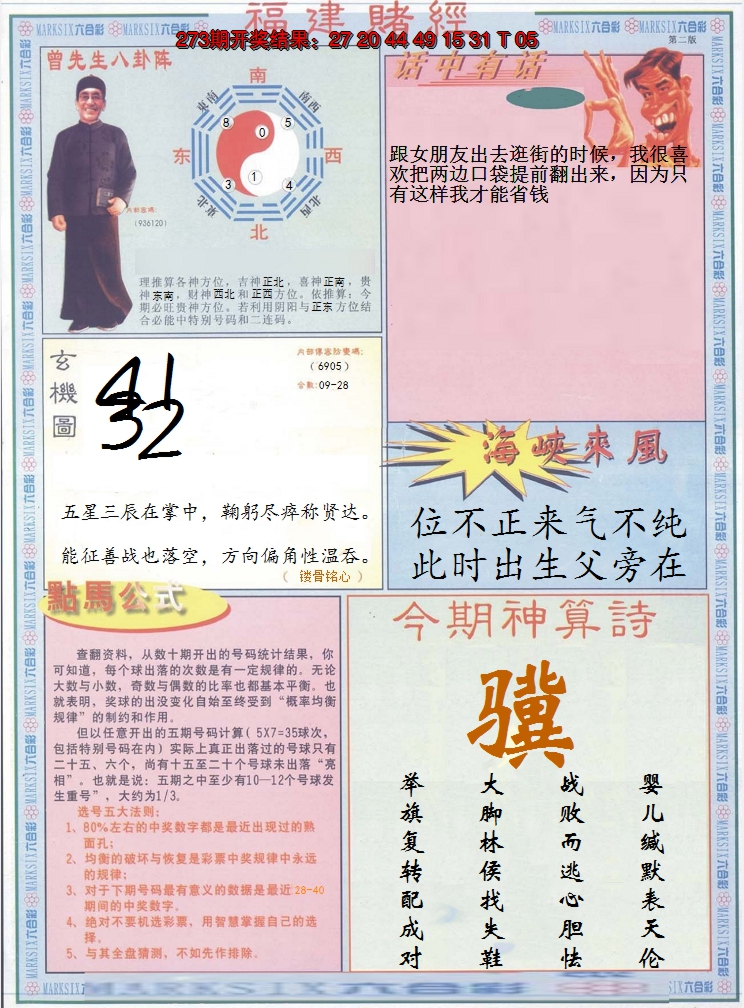 福建賭經
273期开奖结果：27 20 44 49 15 31 T 05
第二版
曾先生八卦阵
南
東南
南西
8
0
5
东
西
3
1
4
東北
西北
北
内部密碼:
（936120）
理推算各神方位，吉神正北，喜神正南，贵
神东南，财神西北和正西方位。依推算：今
期必旺贵神方位。若利用阴阳与正东方位结
合必能中特别号码和二连码。
话中有话
跟女朋友出去逛街的时候，我很喜
欢把两边口袋提前翻出来，因为只
有这样我才能省钱
玄機圖
内部傳密防變碼:
（6905）
合数:09-28
41
32
五星三辰在掌中，鞠躬尽瘁称贤达。
能征善战也落空，方向偏角性温吞。
（ 镂骨铭心 ）
海峽來風
位不正来气不纯
此时出生父旁在
點馬公式
查翻资料，从数十期开出的号码统计结果，你
可知道，每个球出落的次数是有一定规律的。无论
大数与小数，奇数与偶数的比率也都基本平衡。也
就表明，奖球的出没变化自始至终受到“概率均衡
规律”的制约和作用。
但以任意开出的五期号码计算( 5X7=35球次，
包括特别号码在内）实际上真正出落过的号球只有
二十五、六个，尚有十五至二十个号球未出落“亮
相”。也就是说：五期之中至少有10—12个号球发
生重号”，大约为1/3。
选号五大法则：
1、80%左右的中奖数字都是最近出现过的熟
面孔；
2、均衡的破坏与恢复是彩票中奖规律中永远
的规律；
3、对于下期号码最有意义的数据是最近28-40
期间的中奖数字。
4、绝对不要机选彩票，用智慧掌握自己的选
择。
5、与其全盘猜测，不如先作排除。
今期神算詩
骥
举旗复转配成对
大脚林侯找失鞋
战败而逃心胆怯
婴儿缄默表天伦
MARKSIX六合彩